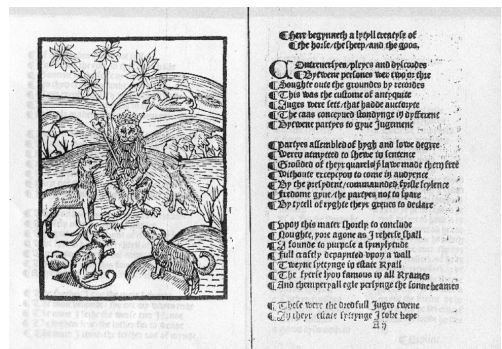 ¶Here begynneth a lytyll treatyse of
¶the horse/the sheep/and the goos.
COntreuersyes/pleyes and dyscordes
¶Bytwene persones wer two or thre
¶Soughte oute the groundes by recordes
¶This was the custome of antyquite
¶Juges were sett/that hadde auctoryte
¶The caas conceyued stondynge in dyfferent
¶Bytwent partyes to gyue Jugement
¶partyes assembled of hygh and lowe degre
¶Were admytted to shewe in sentence
¶Grounded of theyr quarels lawe made them free
¶Withoute excepcyon to come in audyence
¶By the presydent/commaunded fyrste scylence
¶fredome gyue/the partyes not to spare
¶By tytell of ryghte theyr greues to declare
¶Vpon this mater shortly to conclude
¶Noughte yore agone as I reherse shall
¶I founde to purpose a symylytude
¶Full craftly depaynted vpon a wall
¶Tweyne syttynge in estate Ryall
¶The fyerse lyon famous in all Ryames
¶And themperyall egle persynge the sonne beames
¶These were the dredfull Juges twene
¶In theyr estate syttynge I toke kepe